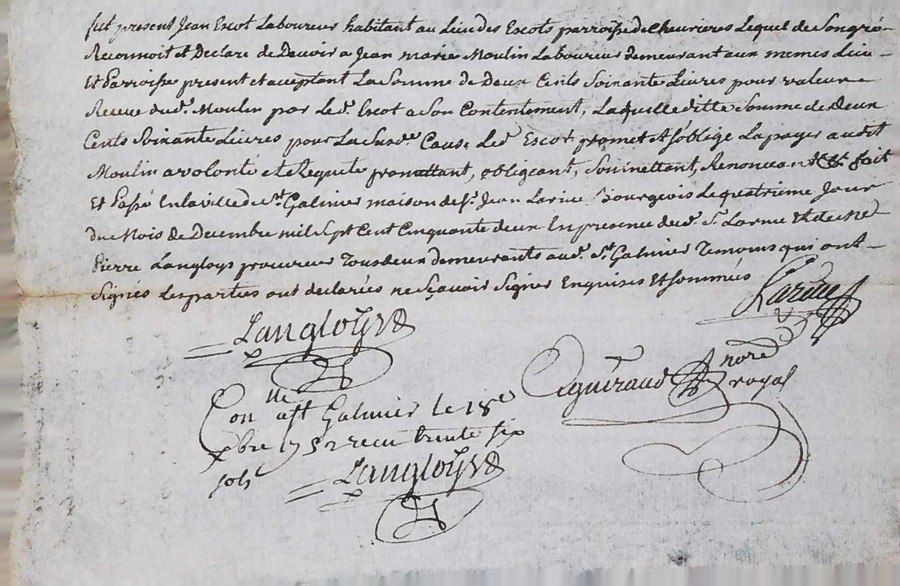 fut present Jean Escot Laboureur habitant au Lieu des Escots parroisse de Chevrieres Lequel de Son gré
Reconnoit et Declare de Devoir a Jean marie Moulin Laboureur demeurant aux memes Lieu
Et Parroisse present et acceptant La Somme de Deux Cents Soixante Livres pour valeur
Receue dud. Moulin par Led. Escot a Son Contentement, Laquelle ditte Somme de Deux
Cents Soixante Livres pour La Susde. Cause Led. Escot promet et s'oblige La payer audit
Moulin a volonté et a Requete promettant, obligeant, Soumettant, Renoncant &a. fait
Et Passé En la ville de St. Galmier maison de Sr. Jean Larue Bourgeois Le quatrieme Jour
du Mois de Decembre mil Sept Cent Cinquante deux En presence dud. Sr. Larue Et de Me
Pierre Langloys procureur Tous deux demeurants aud. St. Galmier Temoins qui ont
Signés Les parties ont declarées ne Sçavoir Signer Enquises Et Sommees
Larue
Langloys
Aguiraud Nore
royal
Conlle a St Galmier le 18e
xbre 1752 recu trente six
sols
Langloys